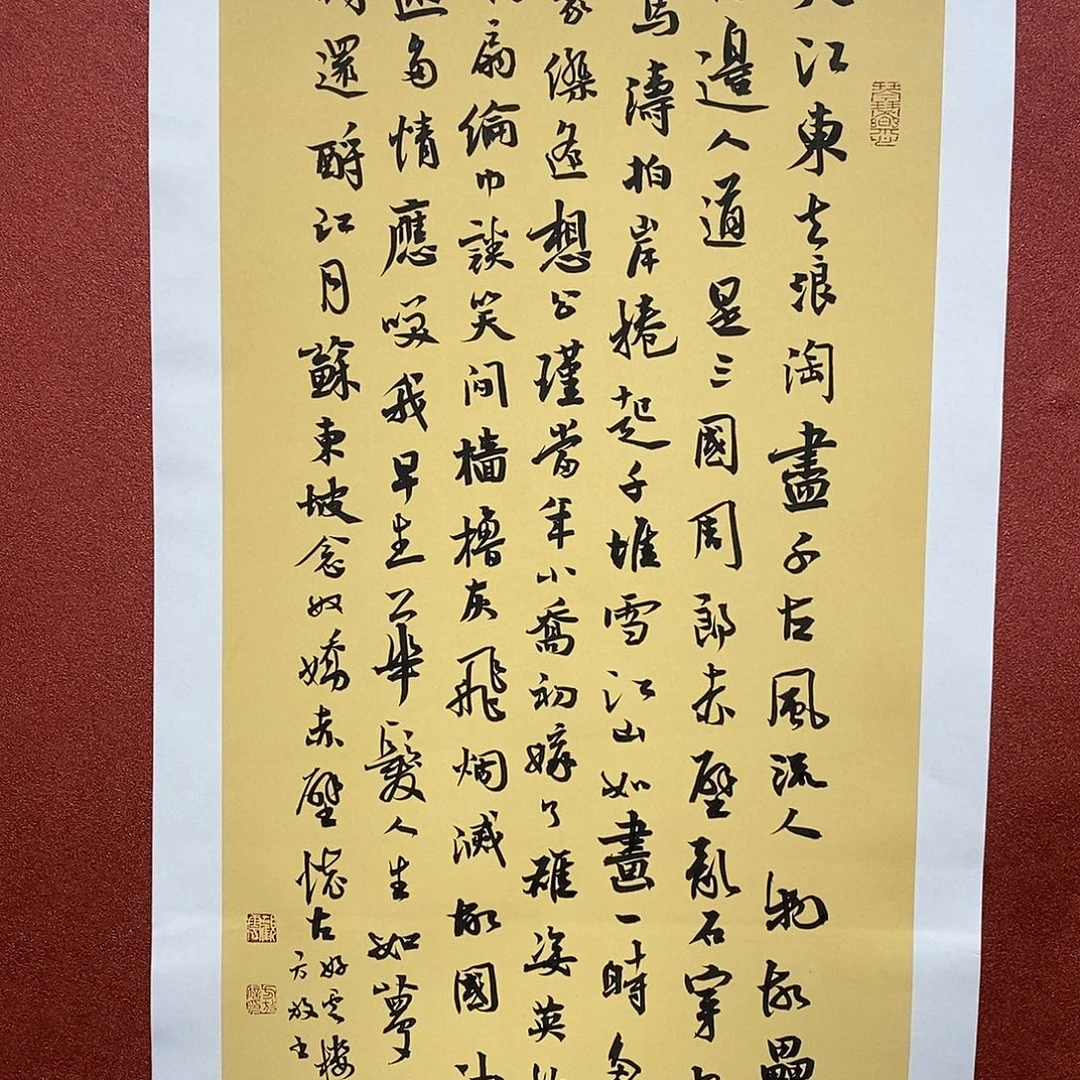 江東去浪淘盡千古風流人物故壘
邊人道是三國周郎赤壁亂石穿
濤拍岸捲起千堆雪江山如畫一時多
豪傑遙想公瑾當年小喬初嫁了雄姿英
扇綸巾談笑間檣櫓灰飛烟滅故國神
遊多情應咲我早生華髮人生如夢
還酹江月蘇東坡念奴嬌赤壁懷古
好雲樓
方放書